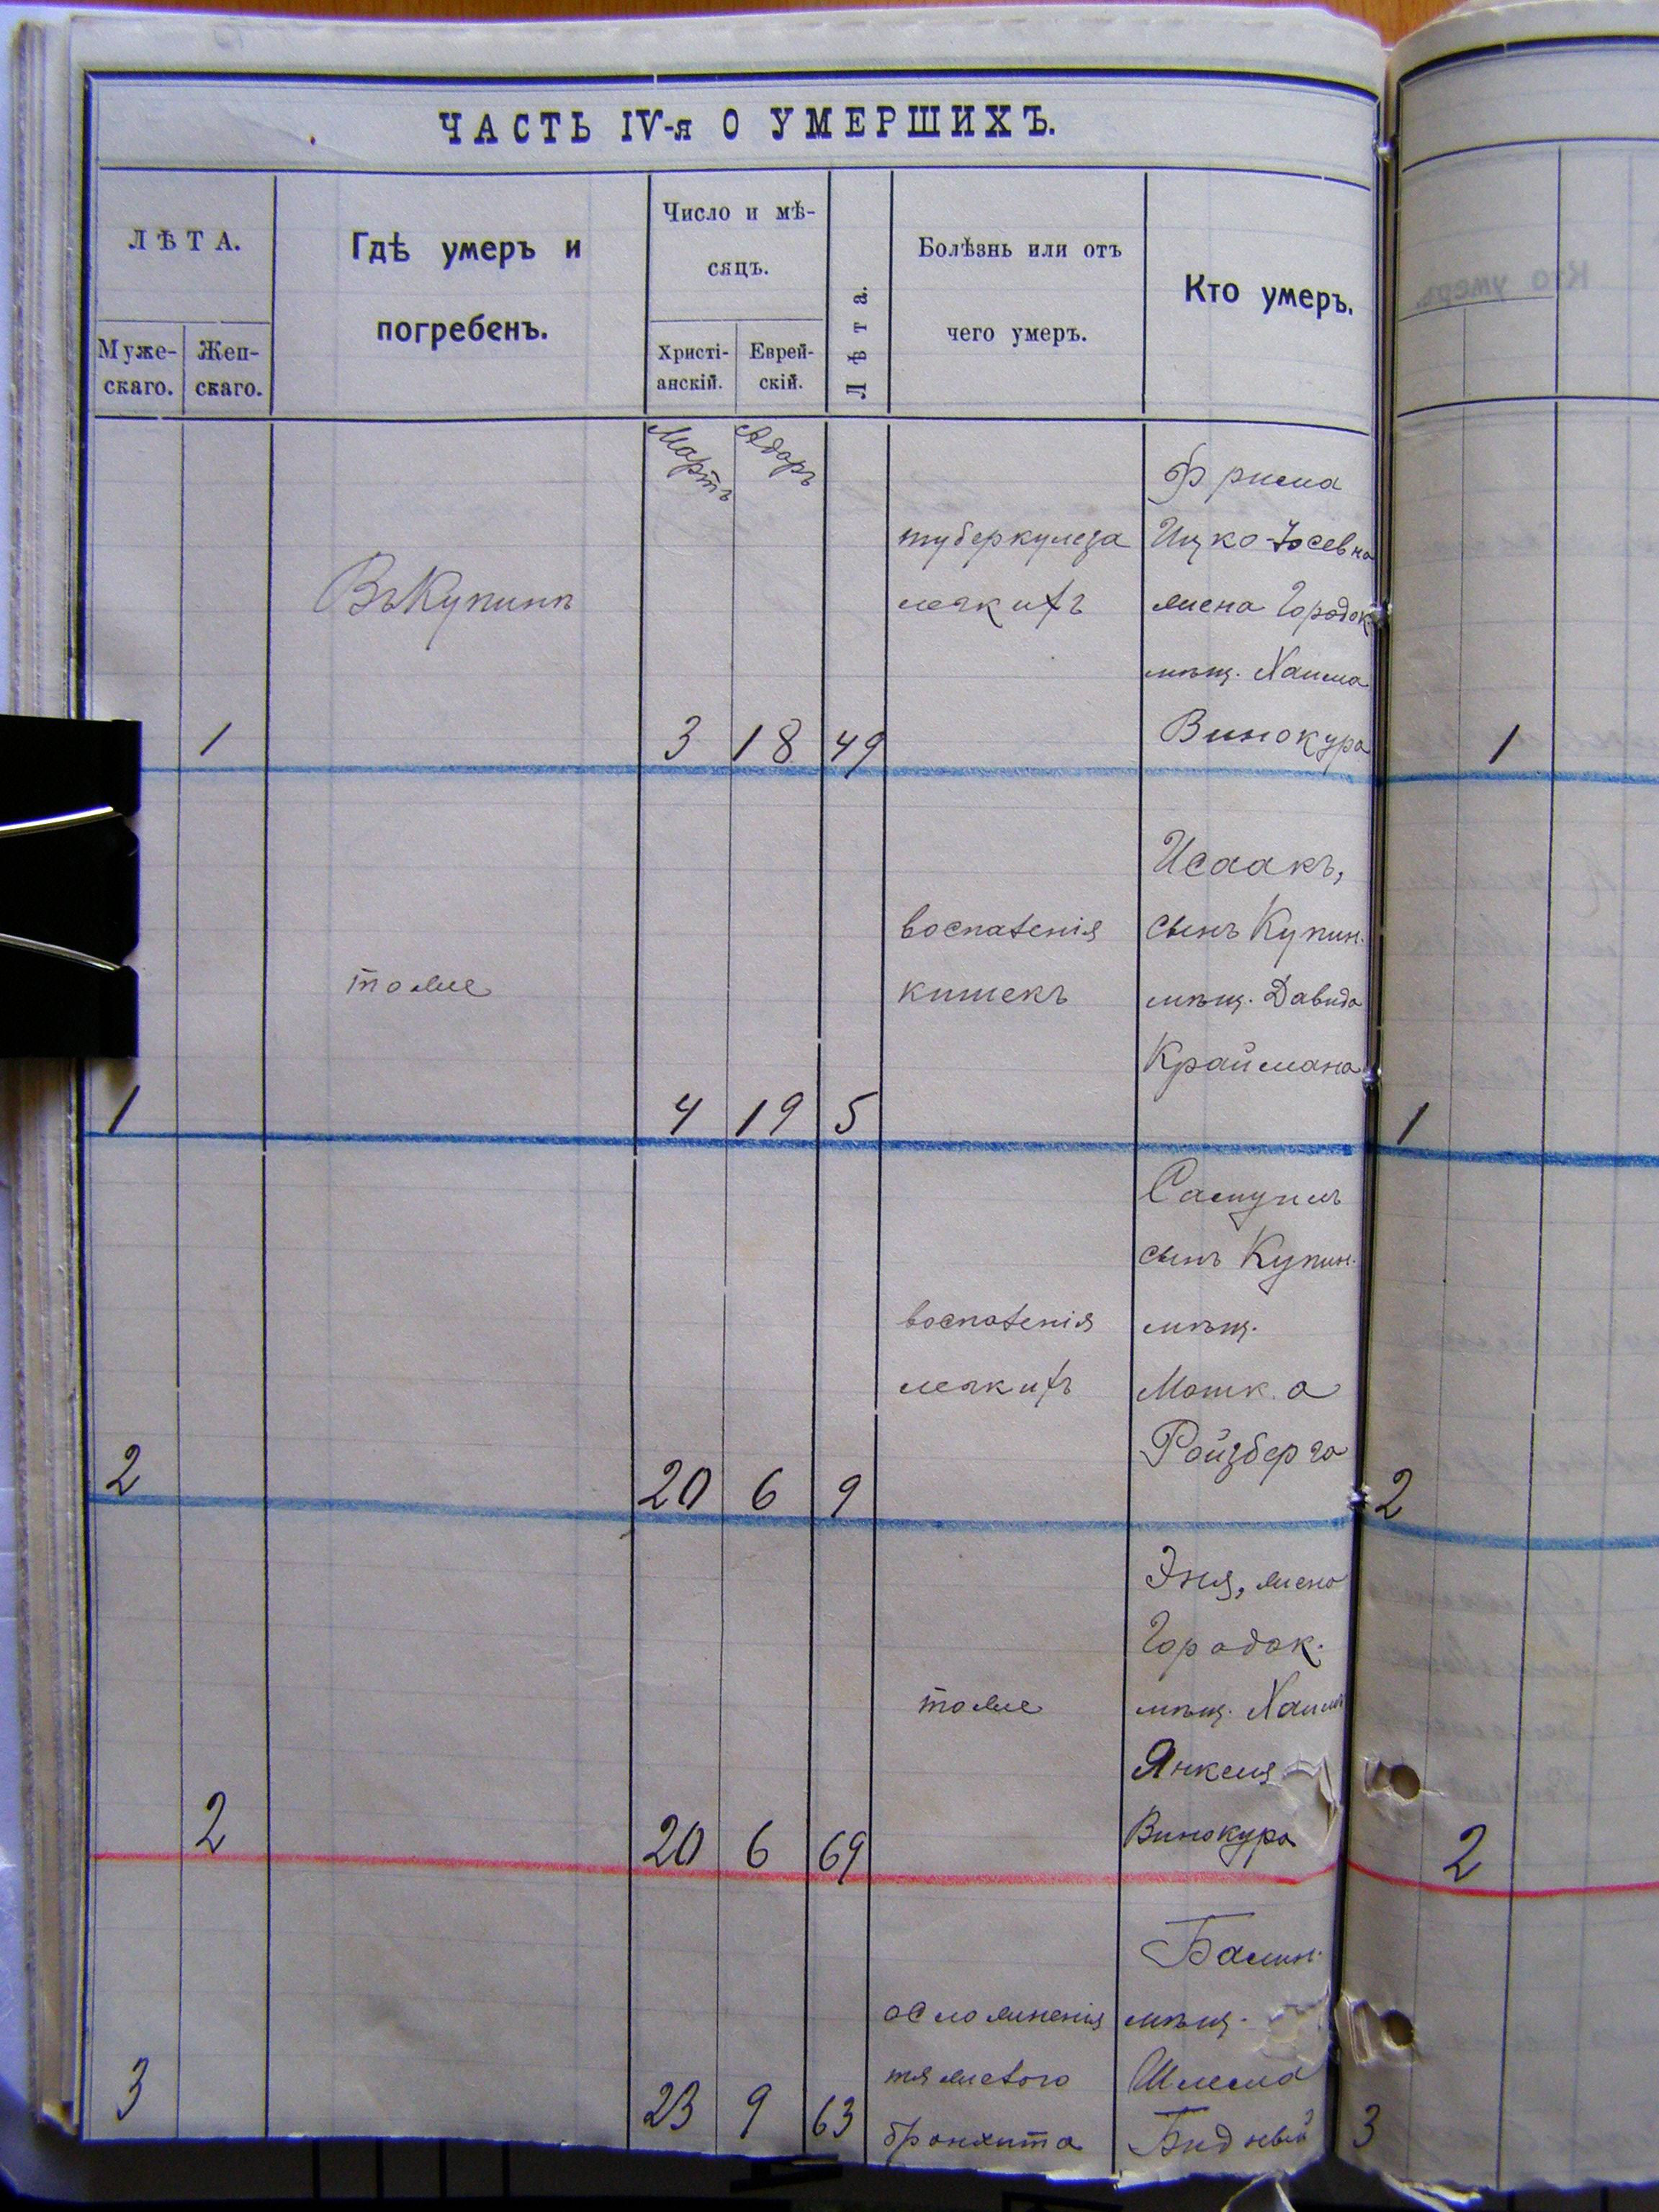 ЧАСТЬ IV-я О УМЕРШИХЪ.
ЛѢТА.
Муже-
скаго.
Жен-
скаго.
Гдѣ умеръ и
погребенъ.
Число и мѣ-
сяцъ.
Христі-
анскій.
Еврей-
скій.
Лѣта.
Болѣзнь или отъ
чего умеръ.
Кто умеръ.
Мартъ
Адаръ
1
Въ Купинѣ
3
18
49
туберкулеза
легкихъ
Фрима
Ицко-Іосевна
жена Городок.
мѣщ. Хаима
Винокура
1
1
тоже
4
19
5
воспаленія
кишекъ
Исаакъ,
сынъ Купин.
мѣщ. Давида
Краймана
1
2
20
6
9
воспаленія
легкихъ
Самуилъ
сынъ Купин.
мѣщ.
Мошка
Ройзберга
2
2
20
6
69
тоже
Эня, жена
Городок.
мѣщ. Хаима
Янкеля
Винокура
2
3
23
9
63
осложненія
тяжелого
бронхита
мѣщ.
Шлема
Бидный
3